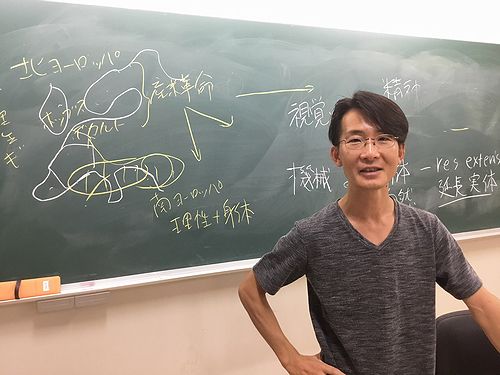 北ヨーロッパ
産業革命
ホッブズ
デカルト
南ヨーロッパ
理性+身体
視覚
精神
機械
体 - res extens
延長実体